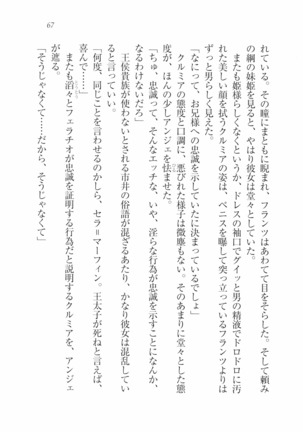 67
れている。その瞳にまともに睨まれ、フランツはあわてて目をそらした。そして頼み
の綱の妹姫を見ると、やはり彼女は堂々としていた。
またも姫様らしくなくというか、ドレスの袖口でグイッと男の精液でドロドロに汚
れた美しい顔を拭うクルミアの姿は、ペニスを曝して突っ立っているフランツよりは
ずっと男らしく見えた。
「なにって、お兄様への忠誠を示していたに決まっているでしょ」
クルミアの態度と口調に、悪びれた様子は微塵もない。そのあまりに堂々とした態
度が、ほんの少しアンジェを怯ませた。
「ちゅ、忠誠って、そんなエッチな、いや、淫らな行為が忠誠を示すことになんて、
なるわけないだろ」
王侯貴族が使わないとされる市井の俗語が混ざるあたり、かなり彼女は混乱してい
ると言っていい。
「何度、同じことを言わせるのかしら、セラ＝マーフィン。王太子が死ねと言えば、
喜んで……」
またも滔々とフェラチオが忠誠を証明する行為だと説明するクルミアを、アンジェ
が遮る。
「そうじゃなくて……だから、そうじゃなくて」